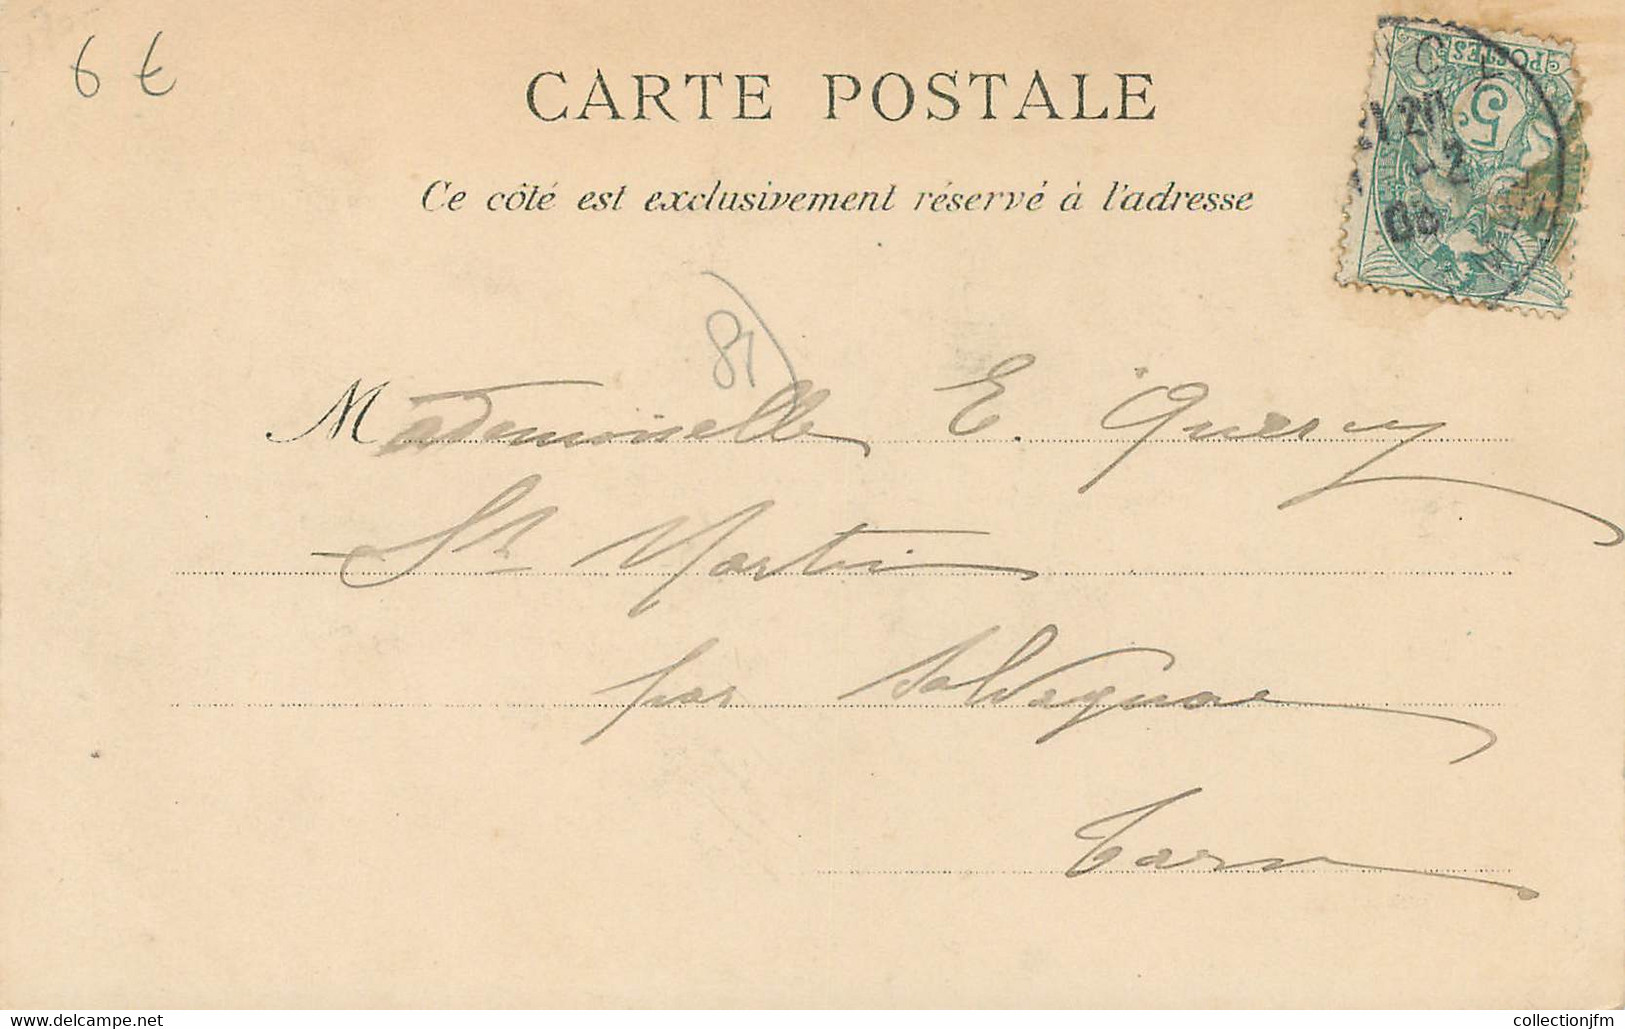 6 €
CARTE POSTALE
Ce côté est exclusivement réservé à l'adresse
POSTES
5c
81
Mademoiselle E. Quercy
St Martin
par Salvagnac
Tarn
www.delcampe.net
collectionjfm